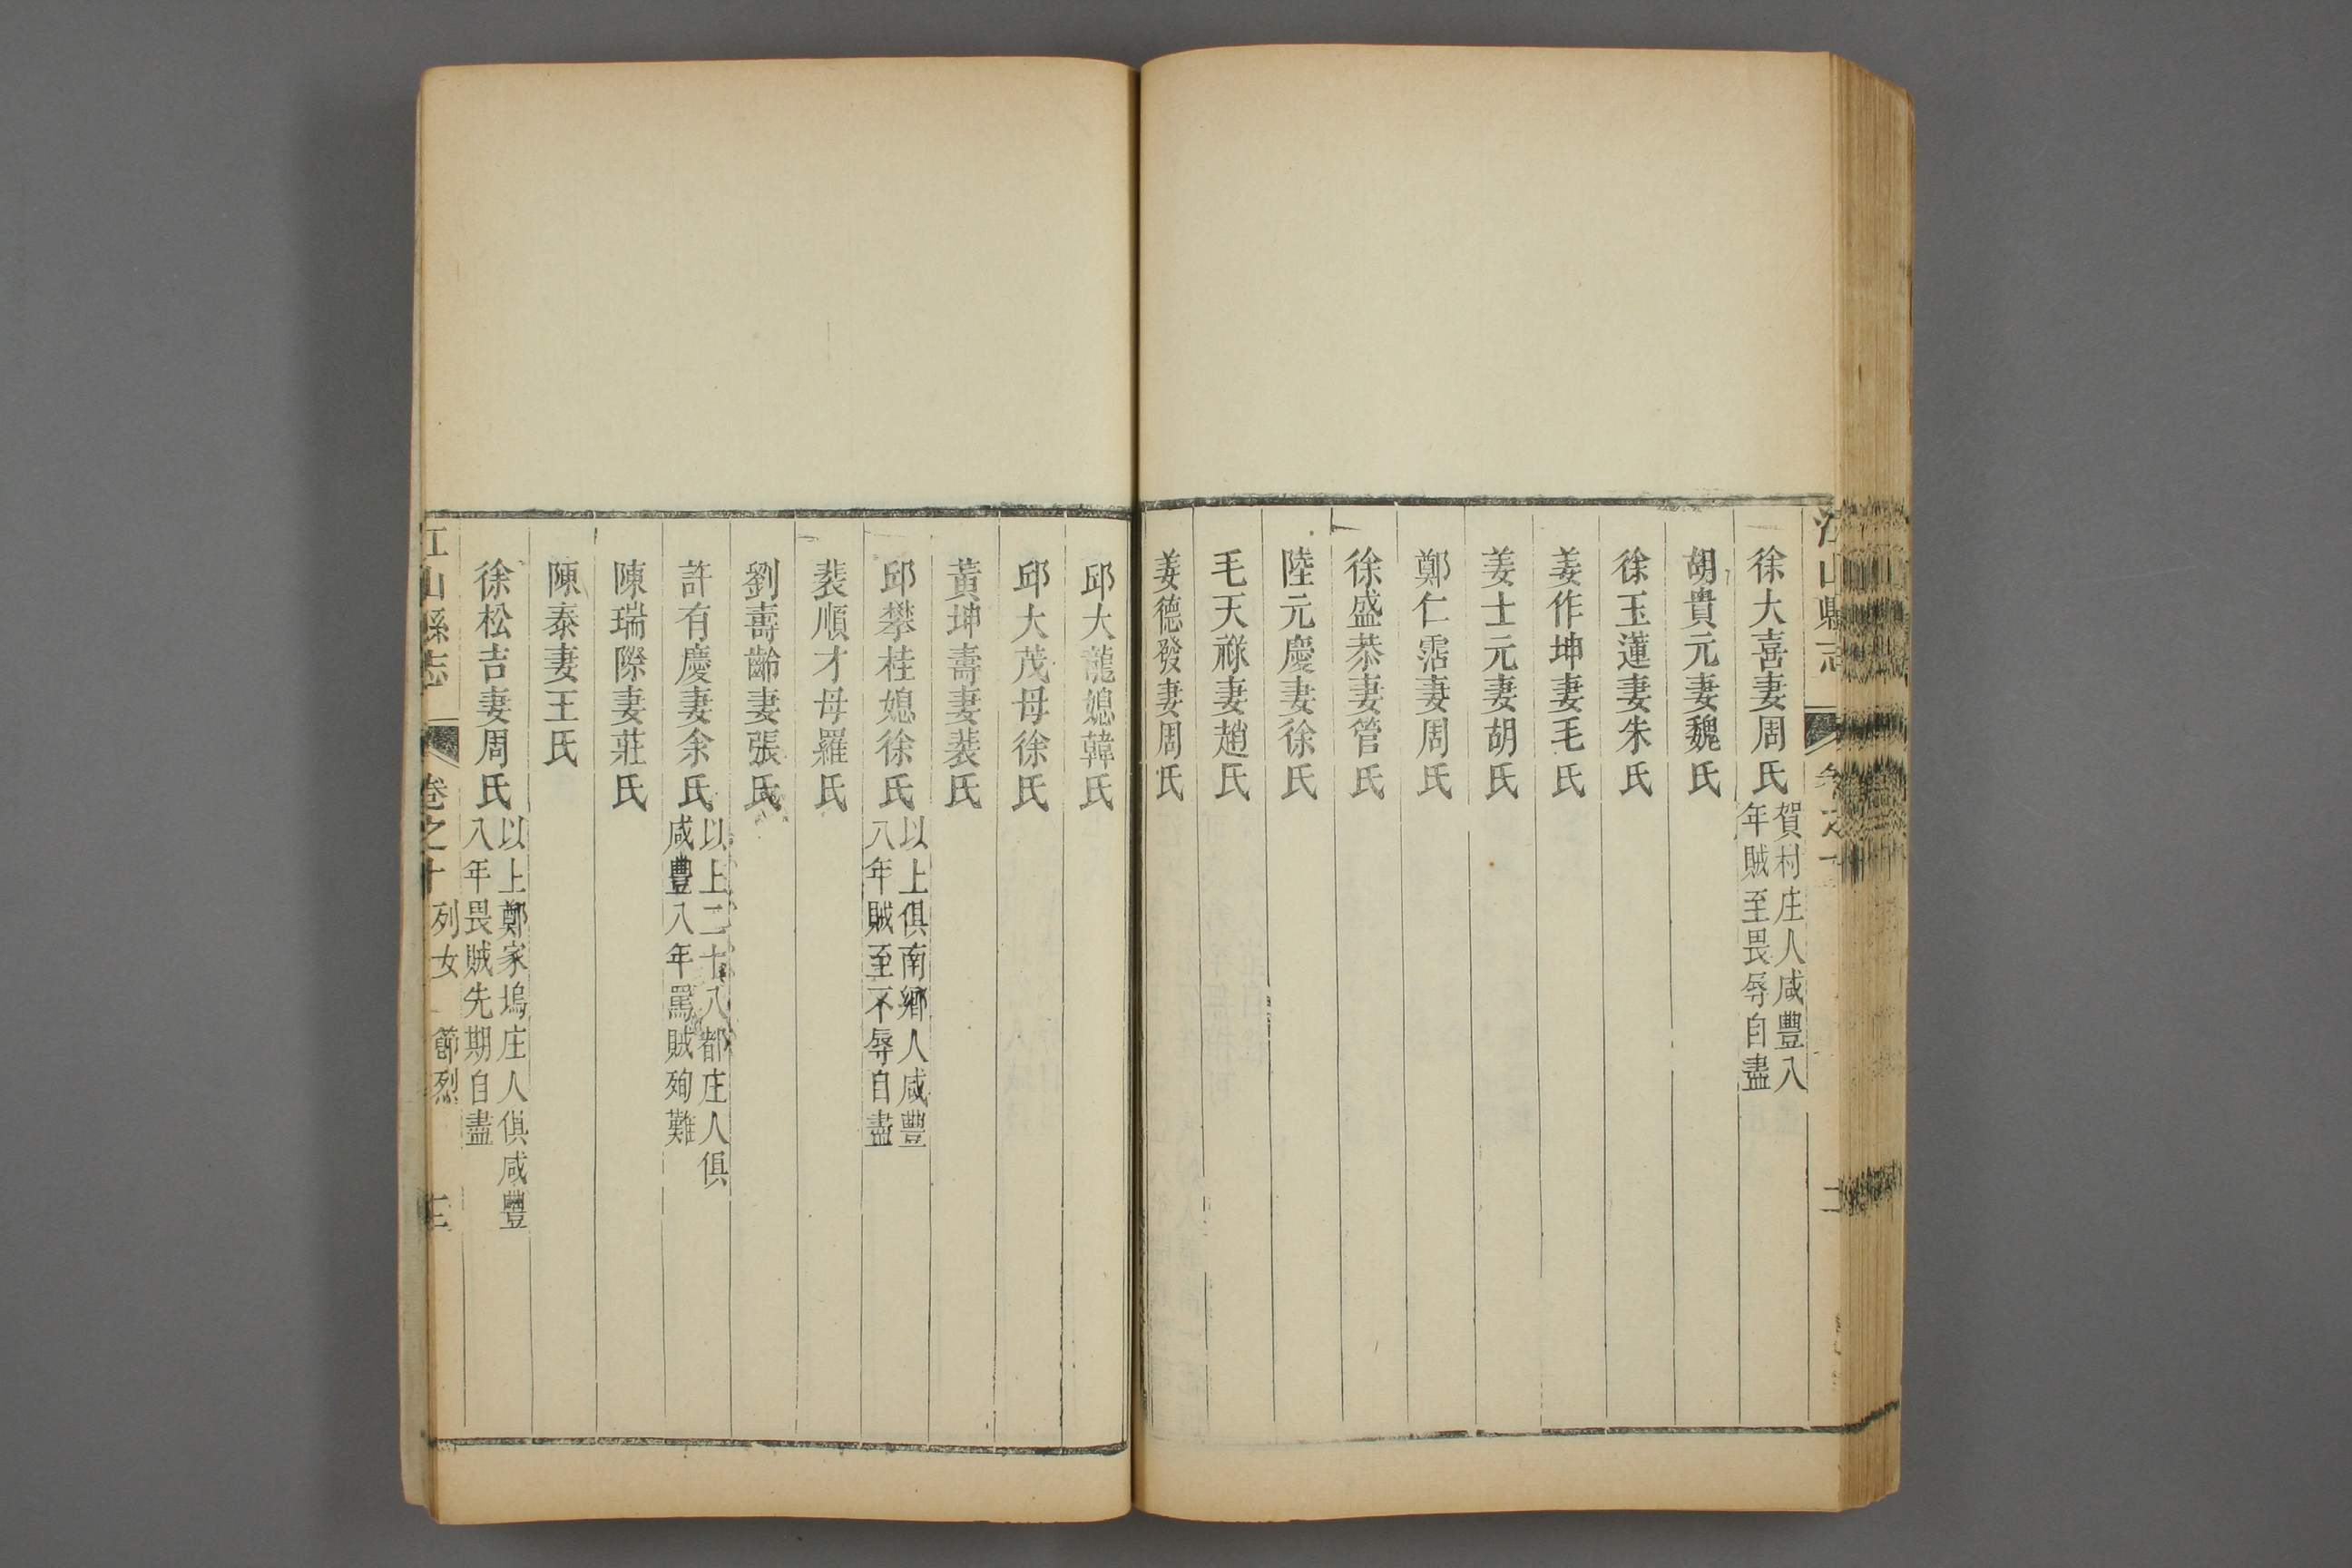 江山縣志
卷之十
二
徐大喜妻周氏
賀村庄人咸豐八
年賊至畏辱自盡
胡貴元妻魏氏
徐玉蓮妻朱氏
姜作坤妻毛氏
姜士元妻胡氏
鄭仁霑妻周氏
徐盛恭妻管氏
陸元慶妻徐氏
毛天祿妻趙氏
姜德發妻周氏
邱大龍媳韓氏
邱大茂母徐氏
黃坤壽妻裴氏
邱攀桂媳徐氏
以上俱南鄉人咸豐
八年賊至不辱自盡
裴順才母羅氏
劉壽齡妻張氏
許有慶妻余氏
以上二十八都庄人俱
咸豐八年罵賊殉難
陳瑞際妻莊氏
陳泰妻王氏
徐松吉妻周氏
以上鄭家塢庄人俱咸豐
八年畏賊先期自盡
江山縣志
卷之十
列女
節烈
三